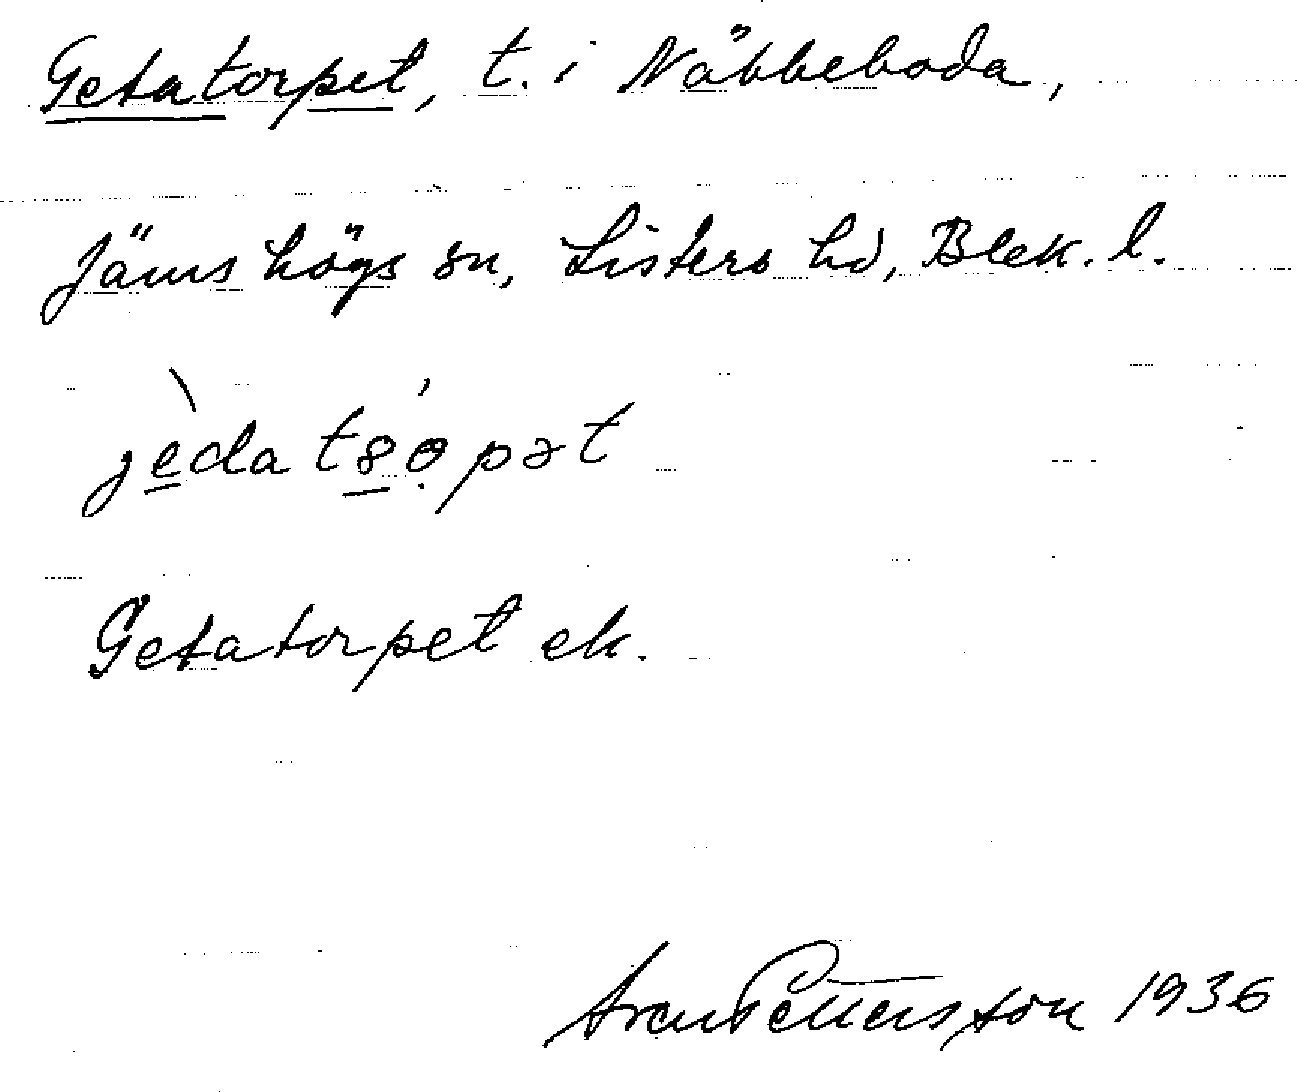 Getatorpet, t. i Näbbeboda,
Jämshögs sn, Listers hd, Blek. l.
Getatorpet ek.
Pettersson 1936